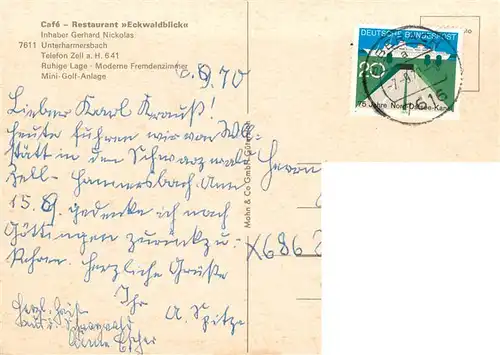 Café – Restaurant »Eckwaldblick«
Inhaber Gerhard Nickolas
7611 Unterharmersbach
Telefon Zell a. H. 641
Ruhige Lage · Moderne Fremdenzimmer
Mini-Golf-Anlage
DEUTSCHE BUNDESPOST
20
75 Jahre Nord-Ostsee-Kanal
16
Mohn & Co GmbH
70
Lieber Karl Krauß!
heute fuhren wir von
stätt in den Schwarzwald
Zell - Harmersbach. Am
15. gedenke ich nach
Göttingen zurückzu-
kehren. Herzliche Grüße
Ihr
A. Spitze
Herrn
X686
Herzl. Grüße